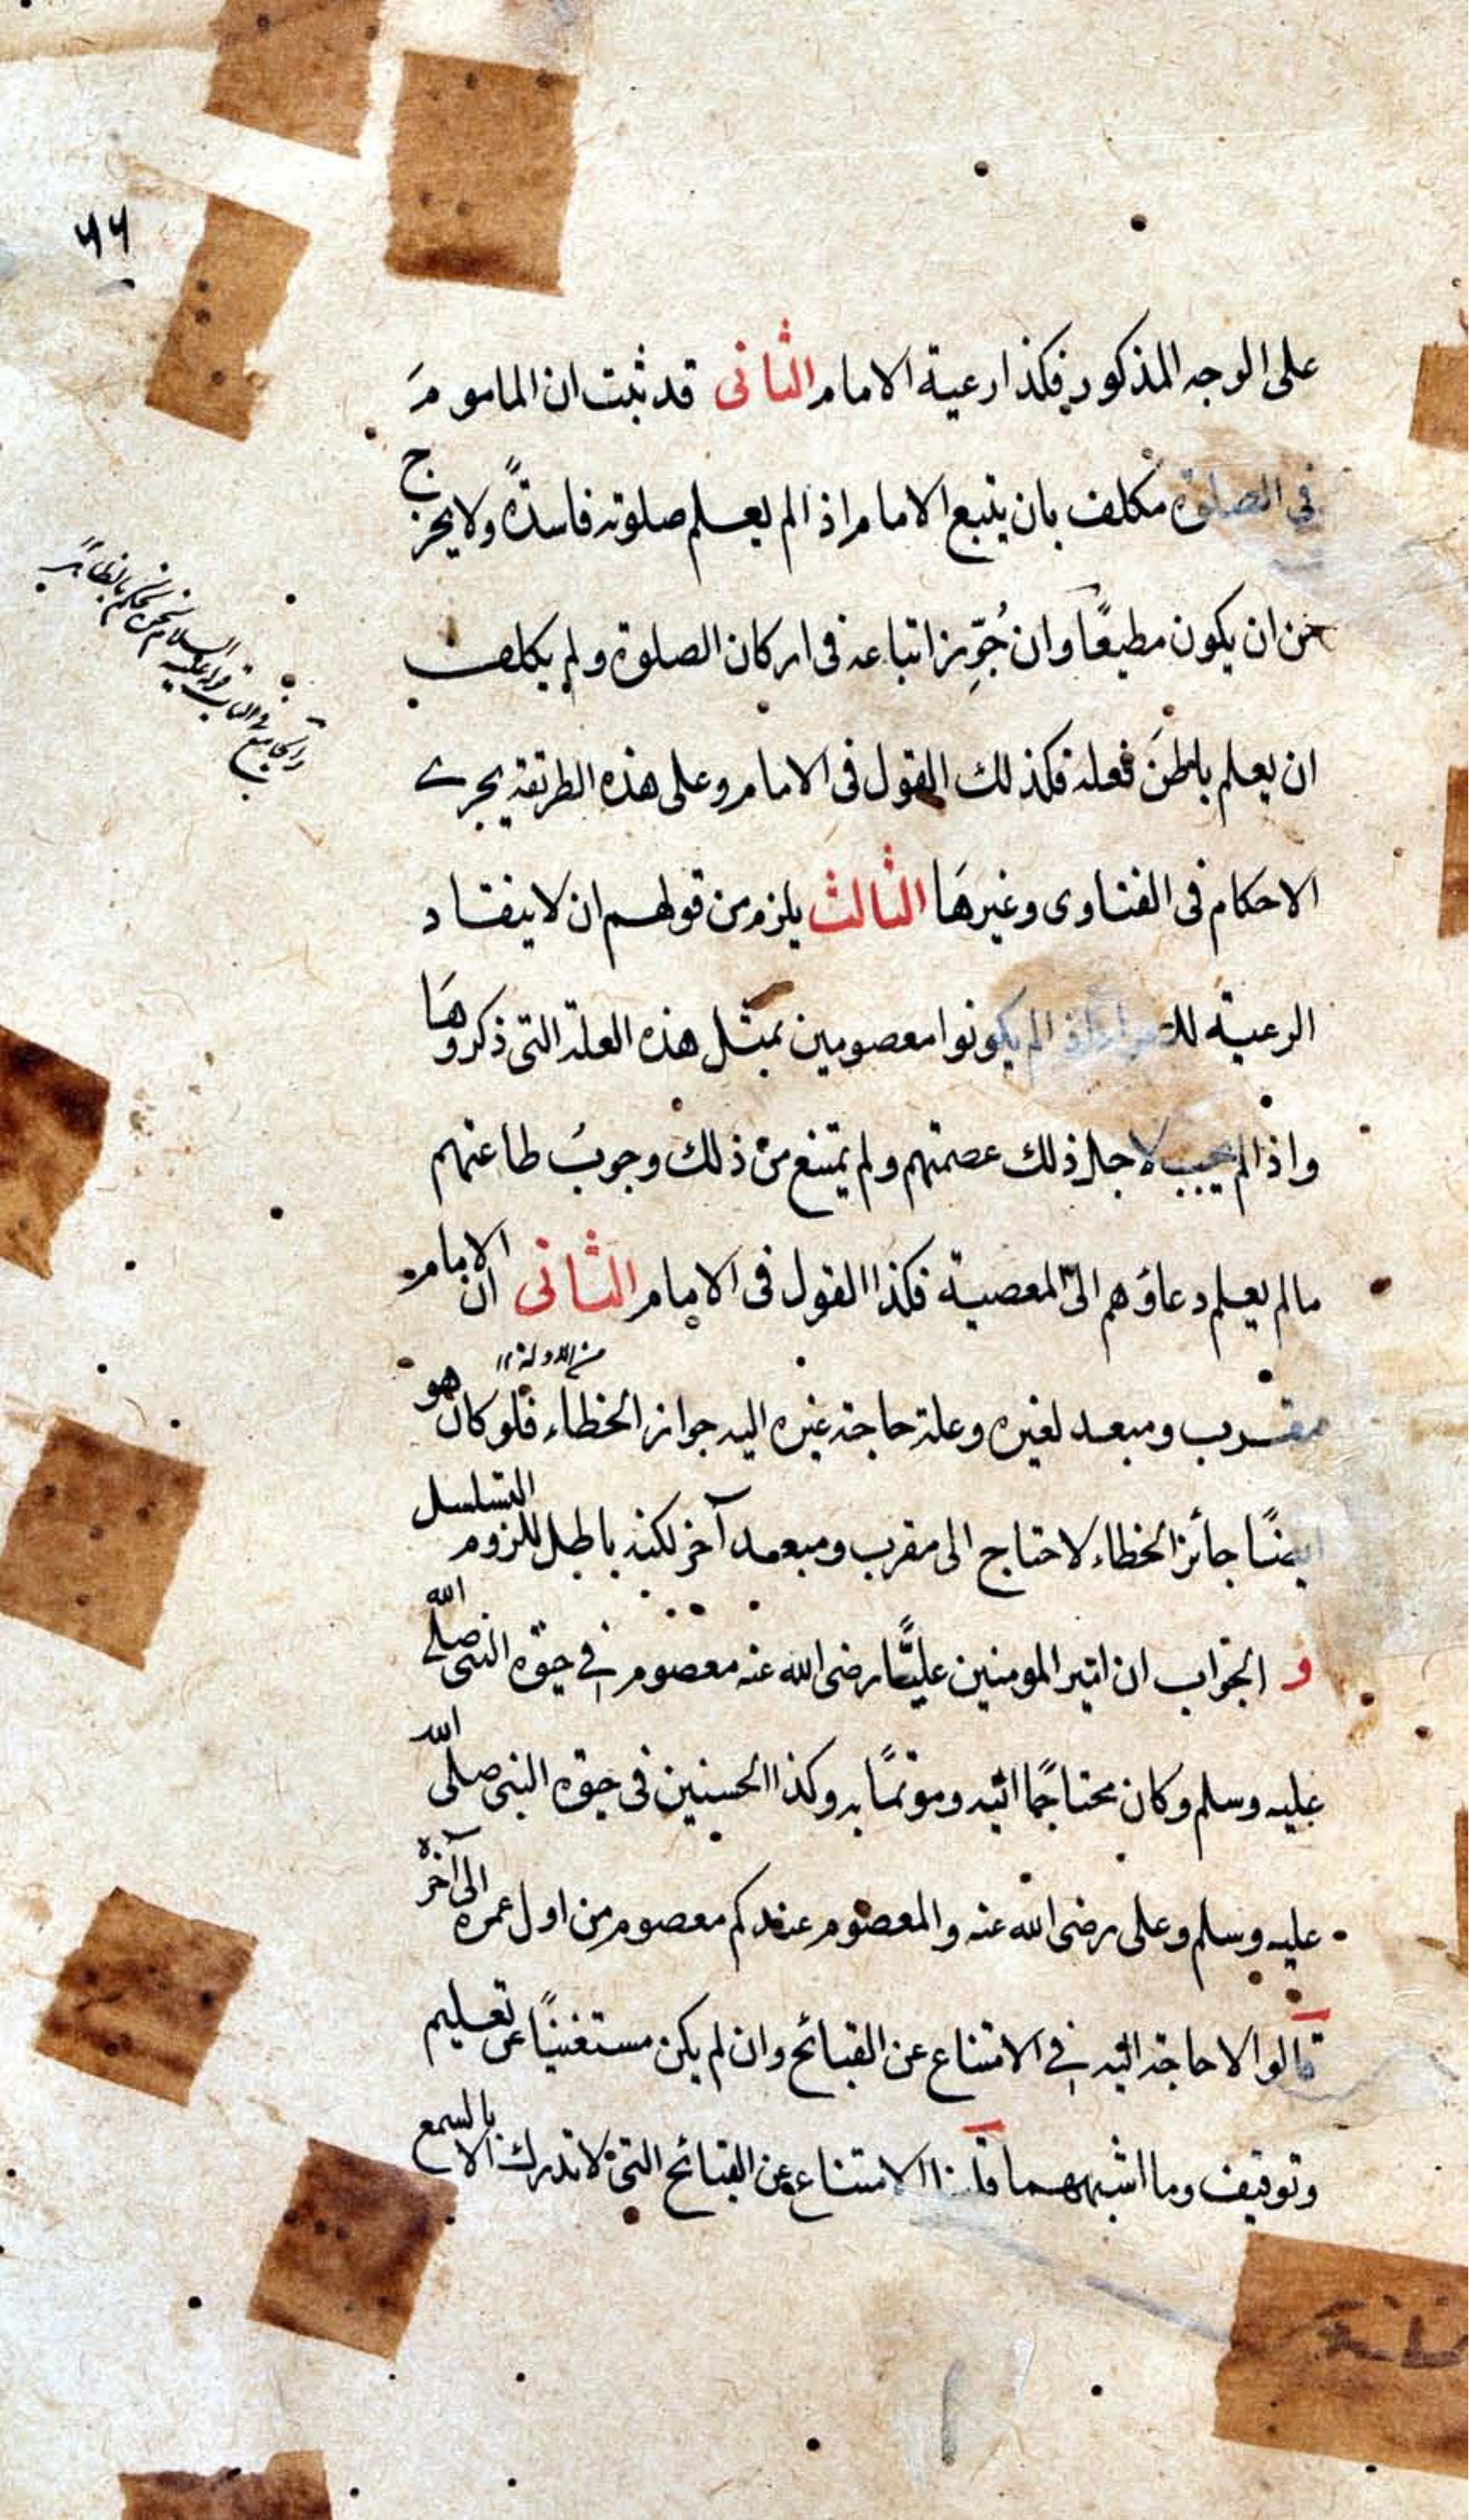 ٤٦
على الوجه المذكور فكذا رعية الامام الثانى قد ثبت ان الماموم
فى الصلوة مكلف بان يتبع الامام اذا لم يعلم صلوته فاسدةً ولا يخرج
من ان يكون مطيعًا وان جُوِّز اتباعه فى اركان الصلوة ولم يكلف
ان يعلم باطنَ فعله فكذلك القول فى الامام وعلى هذه الطريقة يجرى
الاحكام فى الفتاوى وغيرهَا الثالث يلزم من قولهم ان لا ينقاد
الرعية للامراء اذا لم يكونوا معصومين بمثل هذه العلة التى ذكروهَا
واذا لم يجب لاجل ذلك عصمتهم ولم يمتنع من ذلك وجوبُ طاعتهم
مالم يعلم دعاؤهم الى المعصية فكذا القول فى الامام الثانى ان الامام
من الادلة
مقرب ومبعد لغيره وعلة حاجة غيره اليه جواز الخطاء فلو كان هو
ايضًا جائز الخطاء لاحتاج الى مقرب ومبعد آخر لكنه باطل للزوم التسلسل
و الجواب ان امير المومنين عليًّا رضى الله عنه معصوم فى حيٰوة النبى صلى الله
عليه وسلم وكان محتاجًا اليه وموتمًا به وكذا الحسنين فى حيٰوة النبى صلى الله
عليه وسلم وعلى رضى الله عنه والمعصوم عندكم معصوم من اول عمره الى آخره
قالوا لا حاجة اليه فى الامتناع عن القبائح وان لم يكن مستغنيًا عن تعليم
وتوقيف وما اشبههما قلنا الامتناع عن القبائح التى لا تدرك الا بالسمع